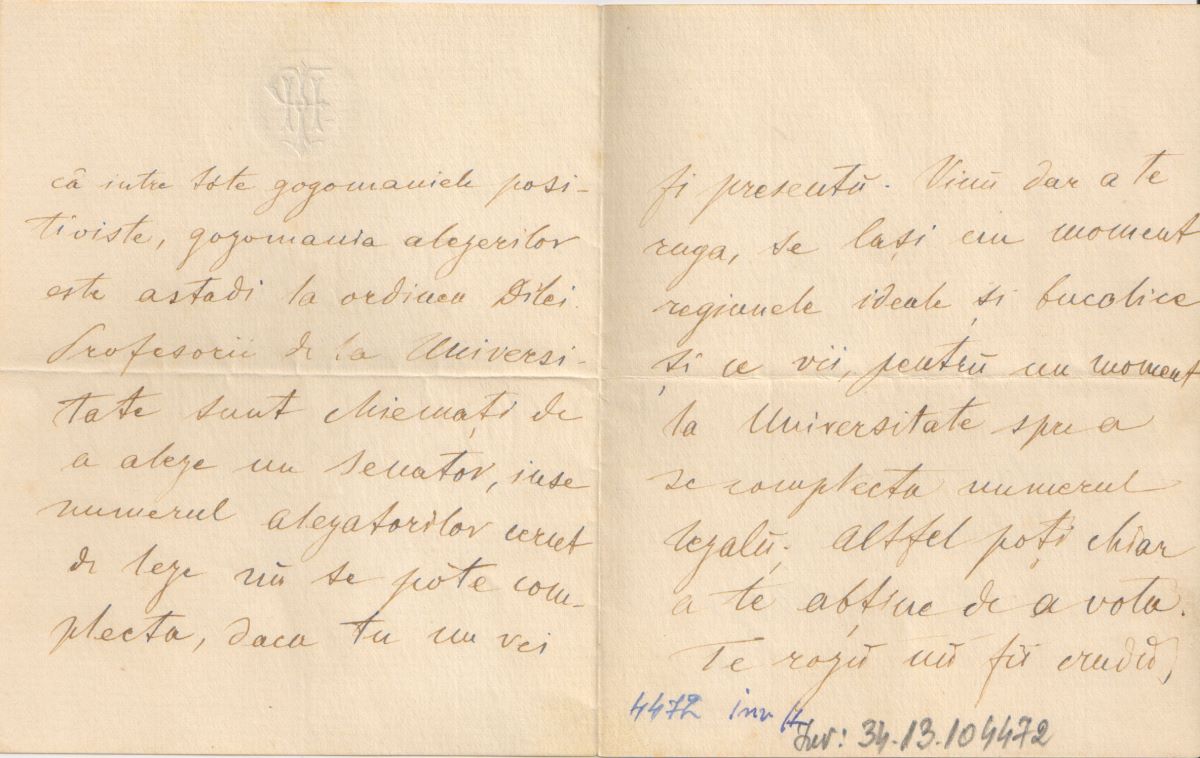 că intre tóte gogomaniele posi-
tiviste, gogomania alegerilor
este astadi la ordinea Dilei.
Profesorii de la Universi-
tate sunt chiemați de
a alege un Senator, inse
numerul alegatorilor cerut
de lege nŭ se pote com-
plecta, daca tu nu vei
fi presentŭ. Vinŭ dar a te
ruga, se lași un moment
regiunele ideale și bucolice
și se vii, pentrŭ un moment
la Universitate spre a
se complecta numerul
legalŭ; altfel poți chiar
a te abține de a vota.
Te rogŭ nŭ fii crudŭ,
4472 inv
Inv: 34.13.104472